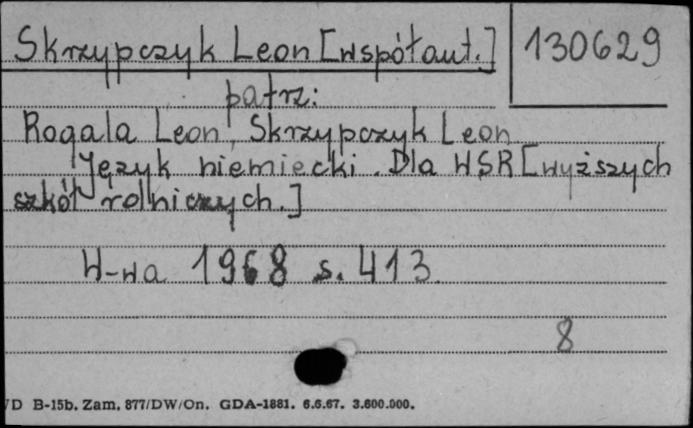 Skrzypczyk Leon [współaut.]
130629
patrz:
Rogala Leon, Skrzypczyk Leon
Język niemiecki. Dla WSR [wyższych
szkół rolniczych.]
W-wa 1968 s. 413.
8
D B-15b. Zam. 877/DW/On. GDA-1881. 6.6.67. 3.600.000.